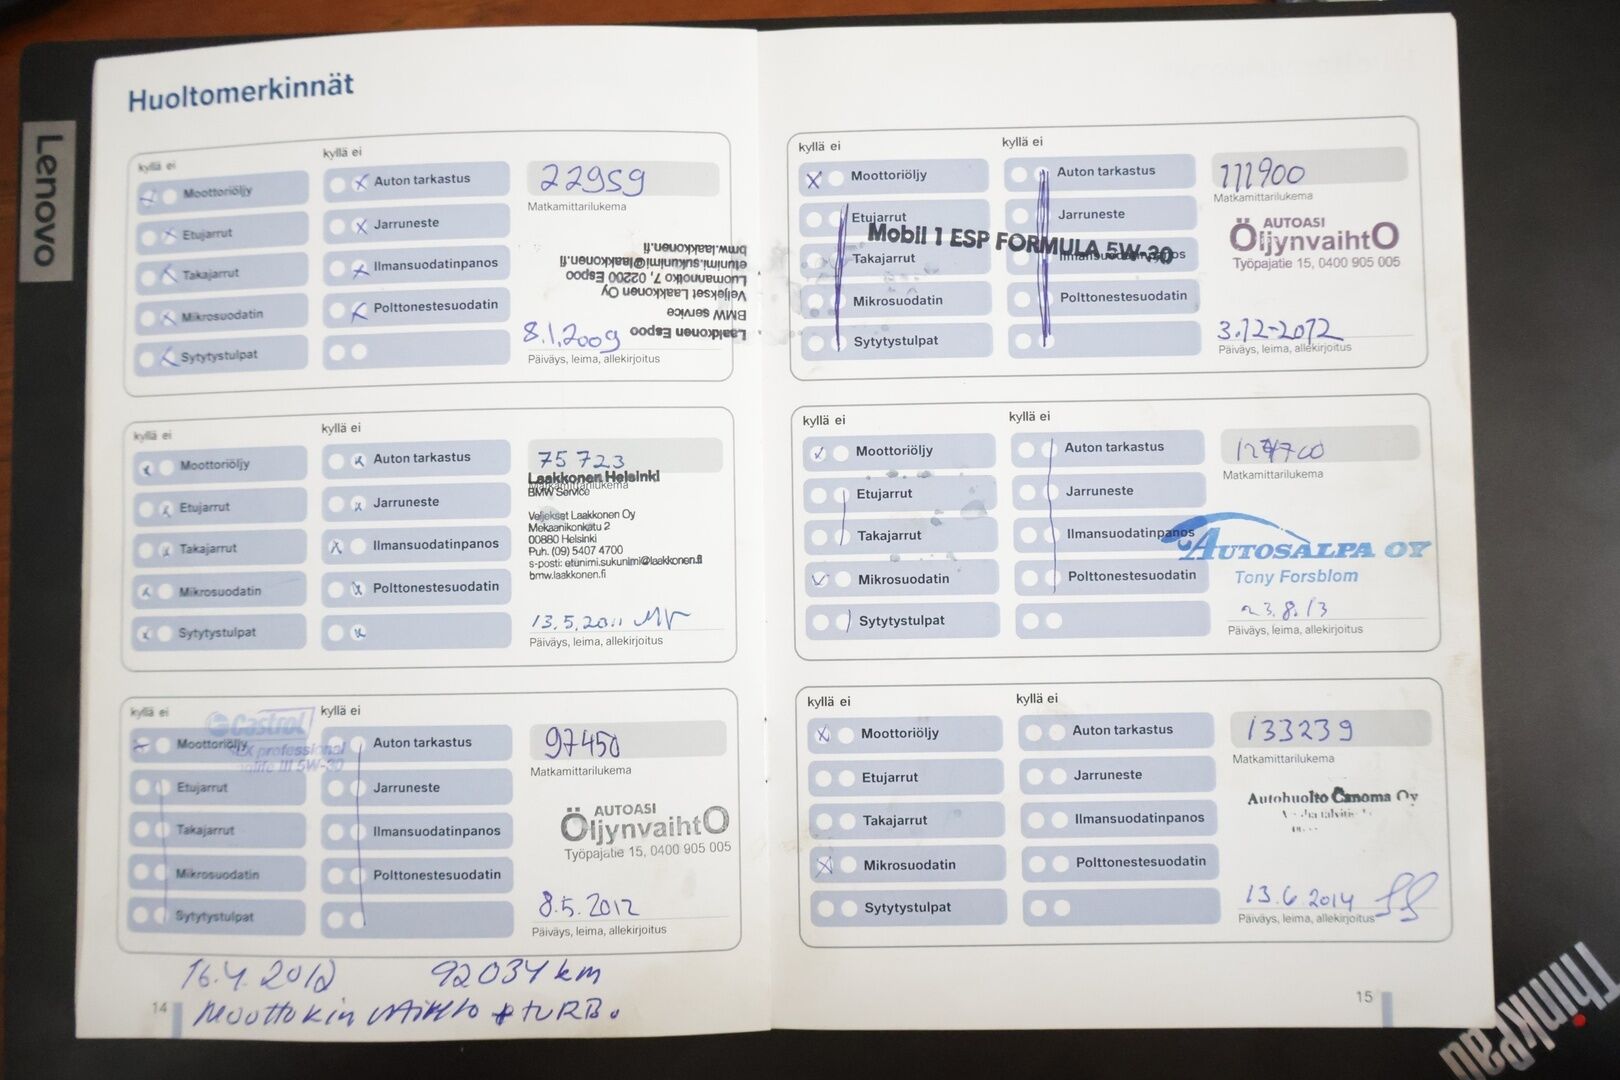 Lenovo
Huoltomerkinnät
kyllä ei
kyllä ei
Moottoriöljy
Auton tarkastus
22959
Matkamittarilukema
Etujarrut
Jarruneste
Takajarrut
Ilmansuodatinpanos
Mikrosuodatin
Polttonestesuodatin
Sytytystulpat
Laakkonen Espoo
BMW service
Veljekset Laakkonen Oy
Luomannotko 7, 02200 Espoo
etunimi.sukunimi@laakkonen.fi
bmw.laakkonen.fi
8.1.2009
Päiväys, leima, allekirjoitus
kyllä ei
kyllä ei
Moottoriöljy
Auton tarkastus
75 723
Matkamittarilukema
Etujarrut
Jarruneste
Takajarrut
Ilmansuodatinpanos
Mikrosuodatin
Polttonestesuodatin
Sytytystulpat
Laakkonen Helsinki
BMW Service
Veljekset Laakkonen Oy
Mekaanikonkatu 2
00880 Helsinki
Puh. (09) 5407 4700
s-posti: etunimi.sukunimi@laakkonen.fi
bmw.laakkonen.fi
13.5.2011
Päiväys, leima, allekirjoitus
kyllä ei
kyllä ei
Castrol
professional
III 5W-30
Moottoriöljy
Auton tarkastus
97450
Matkamittarilukema
Etujarrut
Jarruneste
Takajarrut
Ilmansuodatinpanos
Mikrosuodatin
Polttonestesuodatin
Sytytystulpat
AUTOASI
ÖljynvaihtO
Työpajatie 15, 0400 905 005
8.5.2012
Päiväys, leima, allekirjoitus
16.4.2012 92034 km
14
Moottokin vaihto + turbo
kyllä ei
kyllä ei
Moottoriöljy
Auton tarkastus
111900
Matkamittarilukema
Etujarrut
Jarruneste
Mobil 1 ESP FORMULA 5W-30
Takajarrut
Ilmansuodatinpanos
Mikrosuodatin
Polttonestesuodatin
Sytytystulpat
AUTOASI
ÖljynvaihtO
Työpajatie 15, 0400 905 005
3.12-2012
Päiväys, leima, allekirjoitus
kyllä ei
kyllä ei
Moottoriöljy
Auton tarkastus
Matkamittarilukema
Etujarrut
Jarruneste
Takajarrut
Ilmansuodatinpanos
Mikrosuodatin
Polttonestesuodatin
Sytytystulpat
AUTOSALPA OY
Tony Forsblom
23.8.13
Päiväys, leima, allekirjoitus
kyllä ei
kyllä ei
Moottoriöljy
Auton tarkastus
133239
Matkamittarilukema
Etujarrut
Jarruneste
Takajarrut
Ilmansuodatinpanos
Mikrosuodatin
Polttonestesuodatin
Sytytystulpat
Autohuolto Canoma Oy
13.6.2014
Päiväys, leima, allekirjoitus
15
ThinkPad